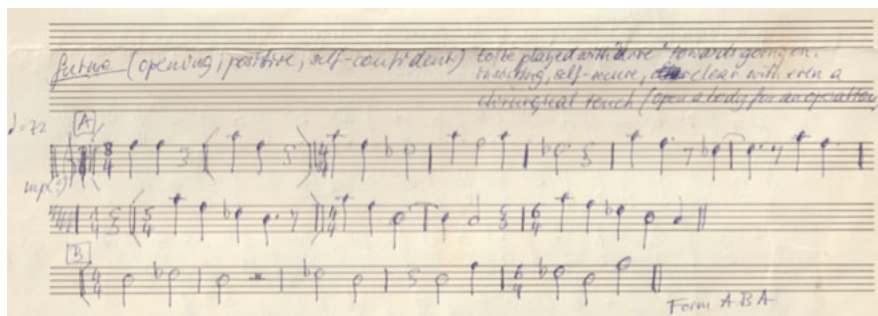 future (opening, positive, self-confident) to be played with "drive" towards going on.
insisting, self-secure, clear with even a
chirurgical touch (open a body for an operation)
♩=72
A
3/4
4/4
mp(!)
5/4
4/4
6/4
B
4/4
6/4
Form A B A